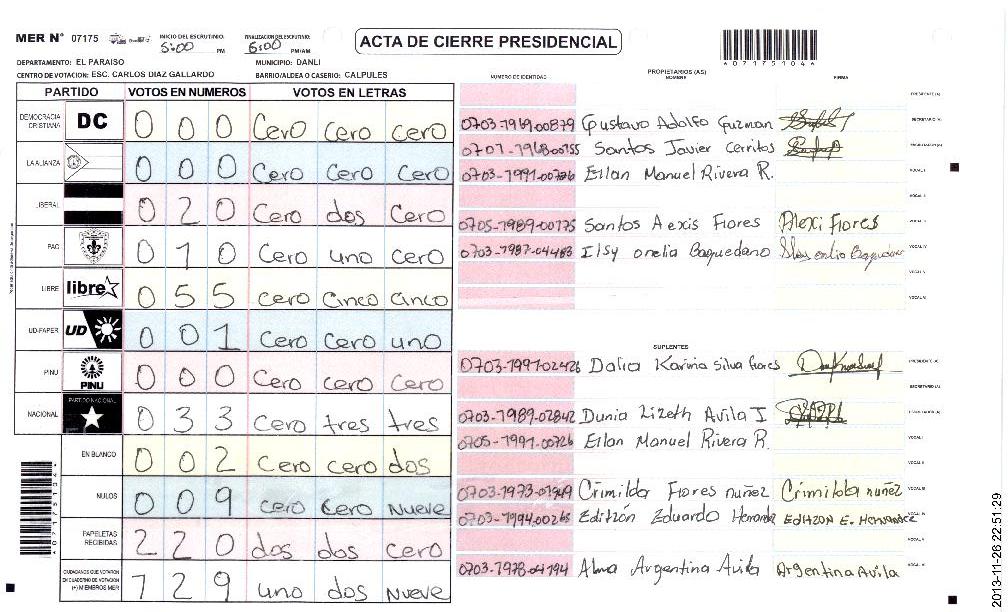 MER N° 07175 INICIO DEL ESCRUTINIO: 5:00 PM FINALIZACION DEL ESCRUTINIO: 6:00 PM/AM
ACTA DE CIERRE PRESIDENCIAL
*0717510 4*
DEPARTAMENTO: EL PARAISO MUNICIPIO: DANLI
CENTRO DE VOTACION: ESC. CARLOS DIAZ GALLARDO BARRIO/ALDEA O CASERIO: CALPULES
PARTIDO VOTOS EN NUMEROS VOTOS EN LETRAS
DEMOCRACIA CRISTIANA DC 0 0 0 Cero cero cero
LA ALIANZA 0 0 0 Cero Cero Cero
LIBERAL 0 2 0 Cero dos Cero
PAC 0 1 0 Cero uno cero
LIBRE libre 0 5 5 cero Cinco Cinco
UD-FAPER UD 0 0 1 Cero Cero uno
PINU PINU 0 0 0 Cero cero cero
NACIONAL PARTIDO NACIONAL 0 3 3 Cero tres tres
EN BLANCO 0 0 2 Cero cero dos
NULOS 0 0 9 cero Cero Nueve
PAPELETAS RECIBIDAS 2 2 0 dos dos cero
CIUDADANOS QUE VOTARON EN CUADERNO DE VOTACION (+) MIEMBROS MER 1 2 9 uno dos Nueve
NUMERO DE IDENTIDAD PROPIETARIOS (AS) NOMBRE FIRMA
PRESIDENTE (A)
0703-1969-00879 Gustavo Adolfo Guzman SECRETARIO (A)
0701-1968-00155 Santos Javier Cerritos ESCRUTADOR (A)
0703-1991-00726 Ellan Manuel Rivera R. VOCAL I
VOCAL II
0705-1989-00175 Santos Alexis Flores Alexi Flores VOCAL III
0703-1987-04483 Ilsy onelia Baquedano VOCAL IV
VOCAL V
VOCAL VI
SUPLENTES
0703-1991-02426 Dalia Karina Silva flores PRESIDENTE (A)
SECRETARIO (A)
0703-1989-02842 Dunia Lizeth Avila I ESCRUTADOR (A)
0705-1991-00726 Ellan Manuel Rivera R. VOCAL I
VOCAL II
0703-1973-01949 Crimilda Flores nuñez Crimilda nuñez VOCAL III
0703-1994-00265 Editzón Eduardo Hernandez EDITZON E. Hernandez VOCAL IV
VOCAL V
0703-1978-04194 Alma Argentina Avila Argentina Avila VOCAL VI
2013-11-26 22:51:29